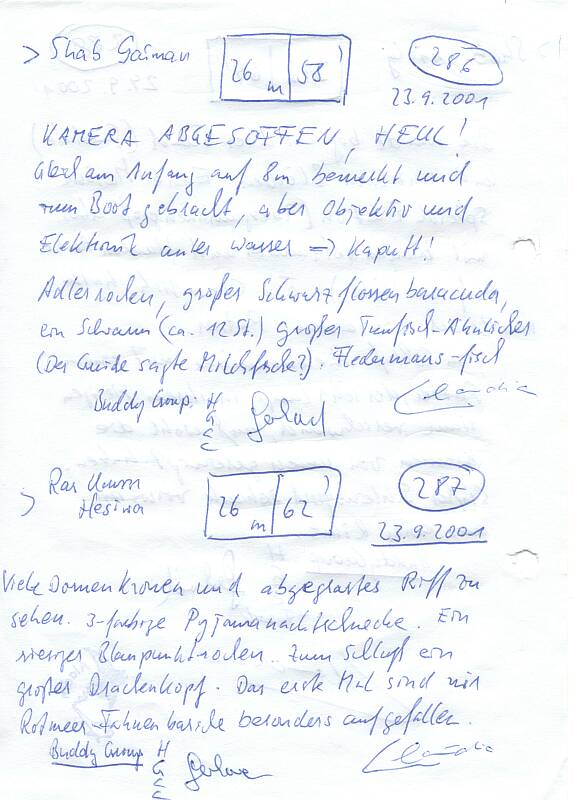 > Shab Gaiman 26 m 58' 286
23.9.2001
KAMERA ABGESOFFEN, HEUL!
Gleich am Anfang auf 8m bemerkt und
zum Boot gebracht, aber Objektiv und
Elektronik unter Wasser => Kaputt!
Adlerrochen, großer Schwarzflossenbaracuda,
ein Schwarm (ca. 12 St.) großer Tunfisch-Ähnlicher
(Der Guide sagte Milchfische?). Fledermaus-fisch
Buddy Group: H
G
E
E
Claudia
> Ras Umm 26 m 62' 287
Hesiwa 23.9.2001
Viele Dornenkronen und abgegrastes Riff zu
sehen. 3-farbige Pyjamanacktschnecke. Ein
riesiger Blaupunktrochen. Zum Schluß ein
großer Drachenkopf. Das erste Mal sind mir
Rotmeer-Fahnenbarsche besonders aufgefallen.
Buddy Group H
G
E
E
Claudia